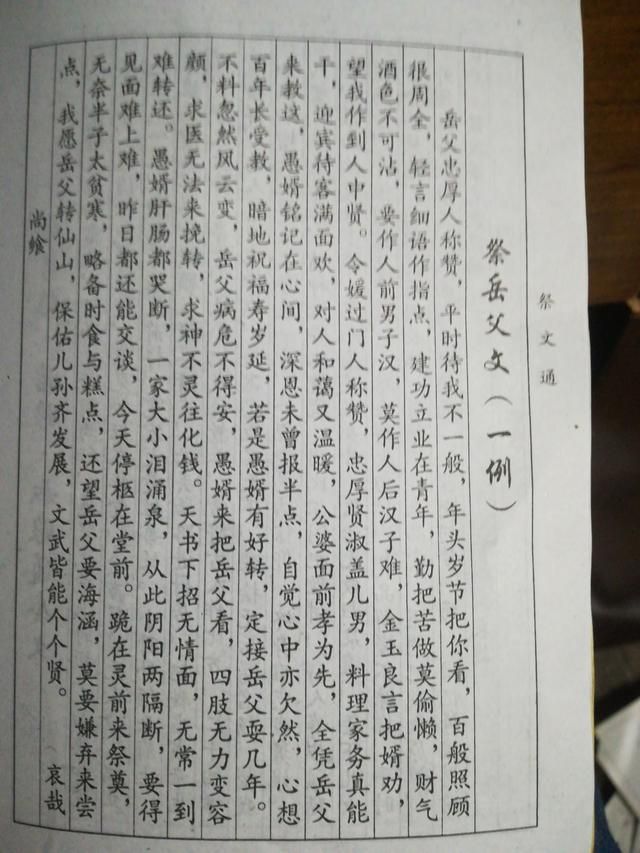 祭文通
祭岳父文（一例）
岳父忠厚人称赞，平时待我不一般，年头岁节把你看，百般照顾
很周全，轻言细语作指点，建功立业在青年，勤把苦做莫偷懒，财气
酒色不可沾，要作人前男子汉，莫作人后汉子难，金玉良言把婿劝，
望我作到人中贤。令媛过门人称赞，忠厚贤淑盖儿男，料理家务真能
干，迎宾待客满面欢，对人和蔼又温暖，公婆面前孝为先，全凭岳父
来教这，愚婿铭记在心间，深恩未曾报半点，自觉心中亦欠然，心想
百年长受教，暗地祝福寿岁延，若是愚婿有好转，定接岳父耍几年。
不料忽然风云变，岳父病危不得安，愚婿来把岳父看，四肢无力变容
颜，求医无法来挽转，求神不灵往化钱。天书下招无情面，无常一到
难转还。愚婿肝肠都哭断，一家大小泪涌泉，从此阴阳两隔断，要得
见面难上难，昨日都还能交谈，今天停柩在堂前。跪在灵前来祭奠，
无奈半子太贫寒，略备时食与糕点，还望岳父要海涵，莫要嫌弃来尝
点，我愿岳父转仙山，保佑儿孙齐发展，文武皆能个个贤。 哀哉
尚飨